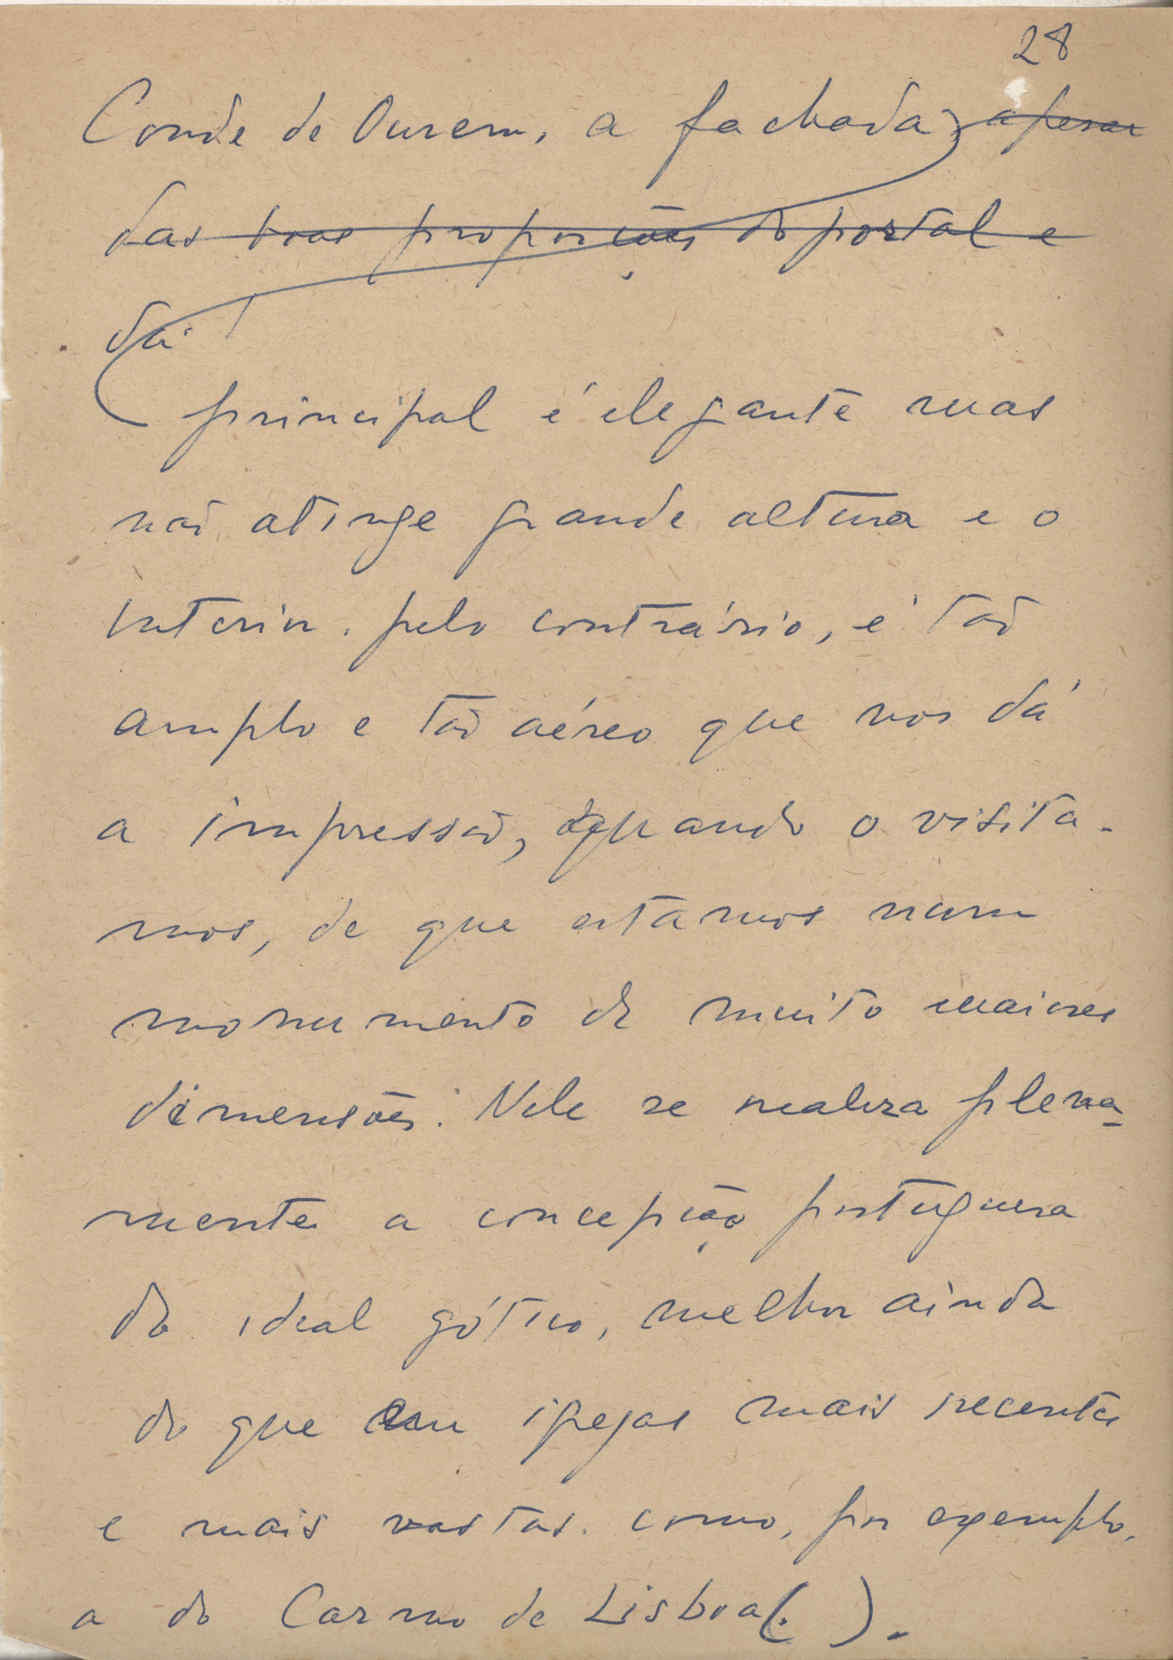 28
Conde de Ourem, a fachada apesar
das boas proporções do portal e
da
principal é elegante mas
não atinge grande altura e o
interior, pelo contrário, é tão
amplo e tão aéreo que nos dá
a impressão, quando o visita-
mos, de que estamos num
monumento de muito maiores
dimensões. Nele se realiza plena-
mente a concepção portuguesa
do ideal gótico, melhor ainda
do que em igrejas mais recentes
e mais vastas. como, por exemplo,
a do Carmo de Lisboa(. ).